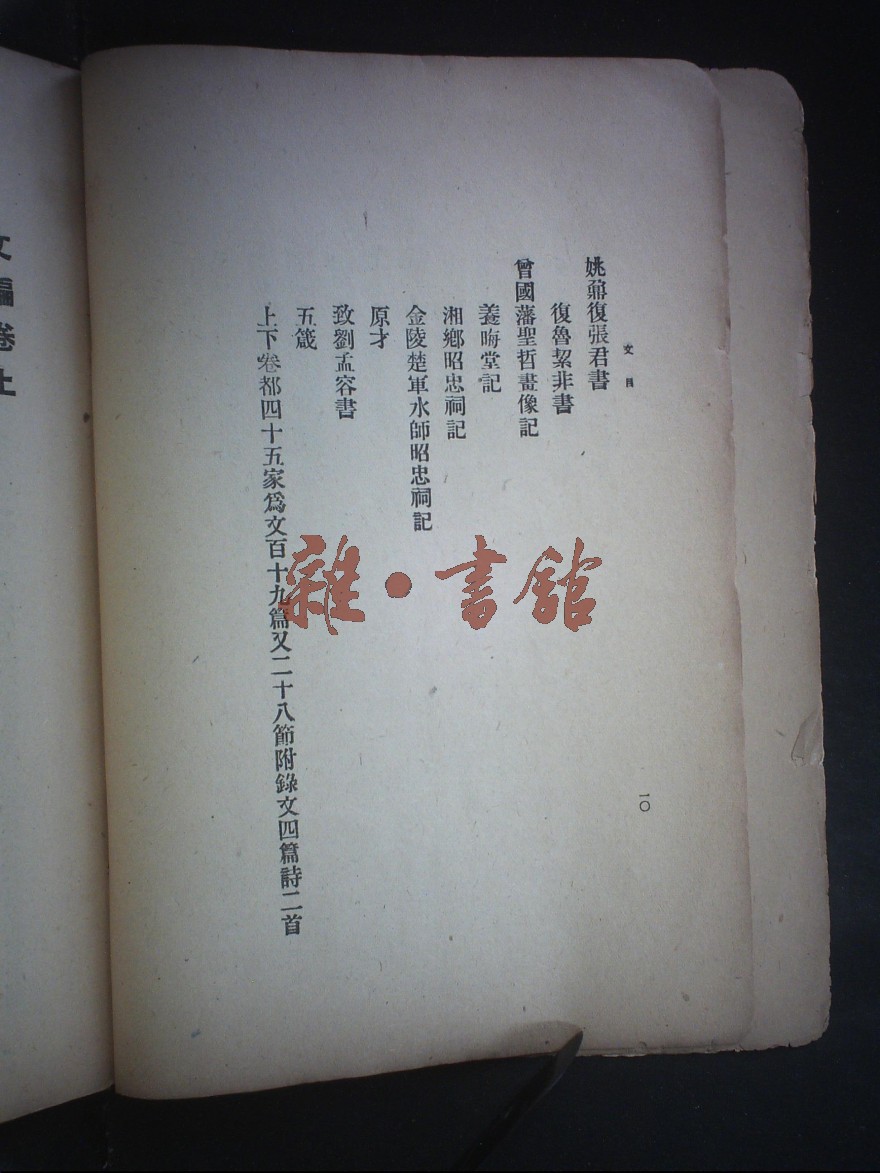 文目
一〇
姚鼐復張君書
復魯絜非書
曾國藩聖哲畫像記
養晦堂記
湘鄉昭忠祠記
金陵楚軍水師昭忠祠記
原才
致劉孟容書
五箴
上下卷都四十五家爲文百十九篇又二十八節附錄文四篇詩二首
文編卷上
雜·書館